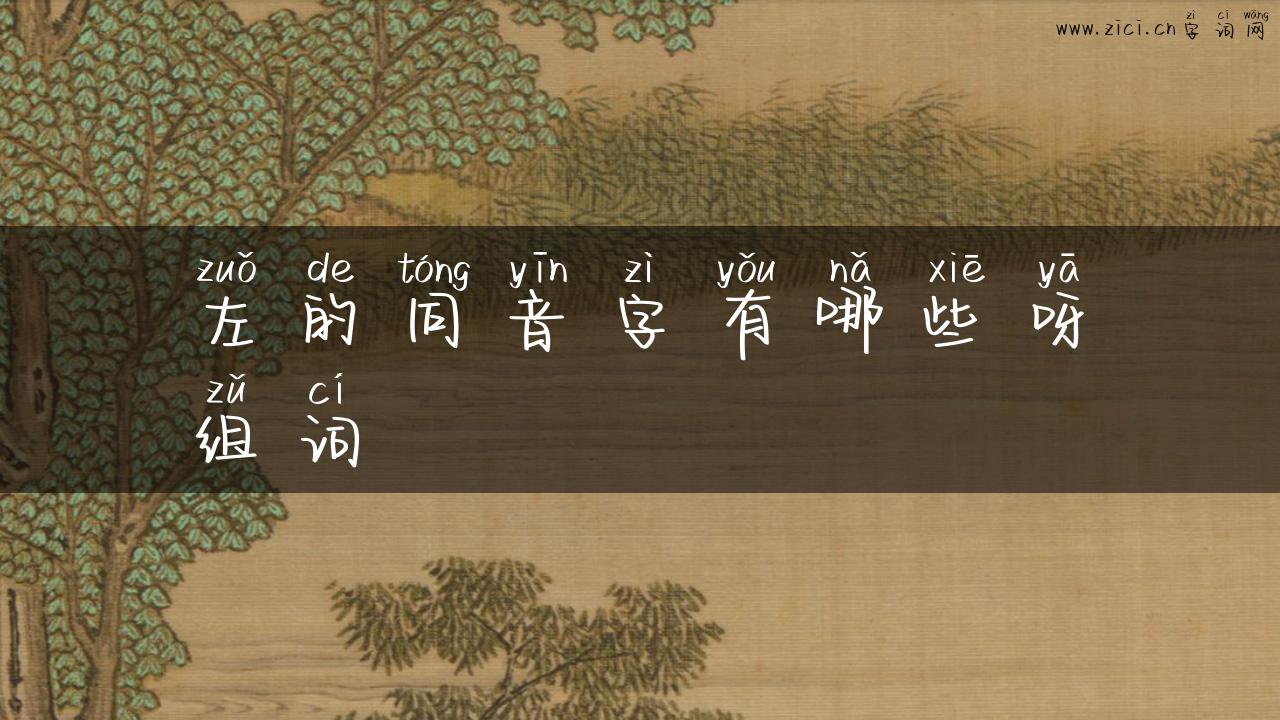 zì cí wǎng
www.zici.cn 字词网
zuǒ de tóng yīn zì yǒu nǎ xiē yā
左的同音字有哪些呀
zǔ cí
组词